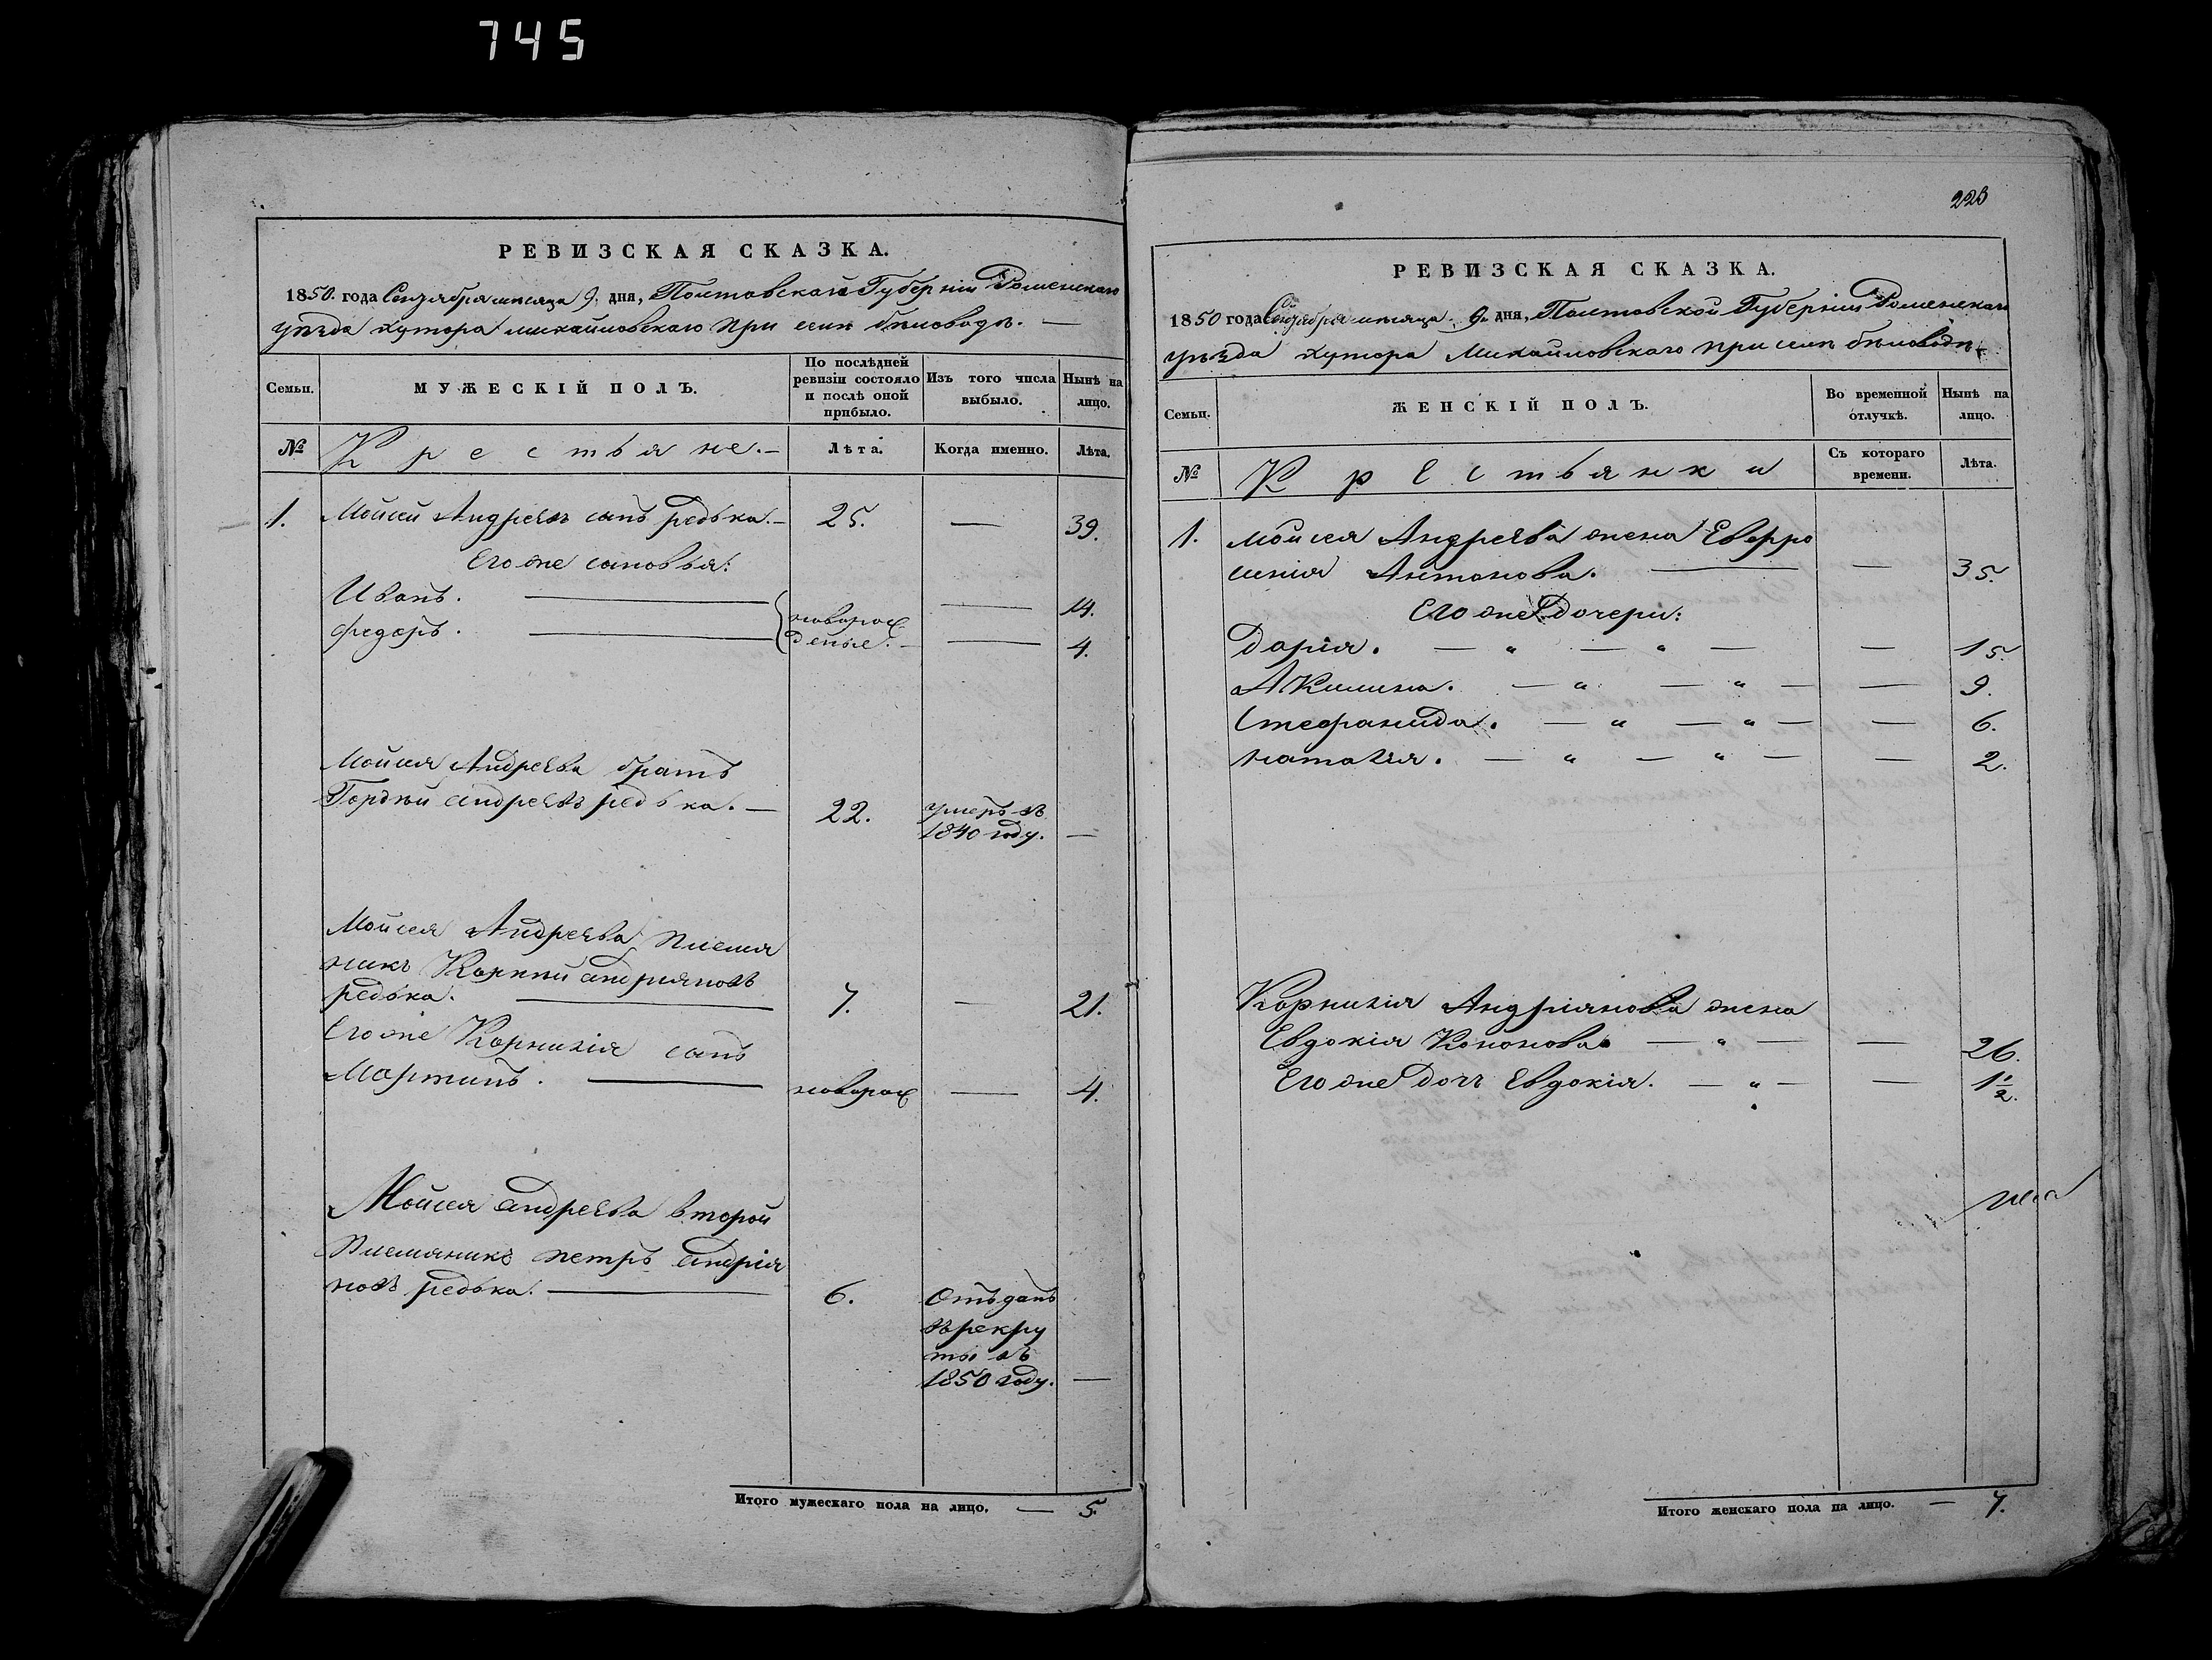 745
РЕВИЗСКАЯ СКАЗКА.
1850. года Сентября мѣсяца 9. дня, Полтавской Губерніи Роменскаго
уѣзда хутора михайловскаго при селѣ бѣловодѣ. —
Семьи.
МУЖЕСКІЙ ПОЛЪ.
По послѣдней
ревизіи состояло
и послѣ оной
прибыло.
Изъ того числа
выбыло.
Нынѣ на
лицо.
№
Крестьяне. —
Лѣта.
Когда именно.
Лѣта.
1. Мойсей Андреевъ сынъ редька. — 25. — 39.
Его же сыновья:
Иванъ. — новорож — 14.
федоръ. — деные. — 4.
Мойсея Андреева братъ
Гордѣй андреевъ редька. — 22. умеръ въ
1840 году. —
Мойсея Андреева племя
никъ Корнѣй андріяновъ
редька. — 7. — 21.
Его же Корнилія сынъ
Мартинъ. — новорож — 4.
Мойсея андреева второй
племяникъ петръ андрія
новъ редька. — 6. Отъданъ
въ рекру
ты въ
1850 году. —
Итого мужескаго пола на лицо. — 5.
223
РЕВИЗСКАЯ СКАЗКА.
1850 года Сентября мѣсяца 9. дня, Полтавской Губерніи Роменскаго
уѣзда хутора Михайловскаго при селѣ бѣловодѣ
Семьи.
ЖЕНСКІЙ ПОЛЪ.
Во временной
отлучкѣ.
Нынѣ на
лицо.
№
Крестьянки
Съ котораго
времени.
Лѣта.
1. мойсея Андреева жена Евфро
синія Антонова. — — 35.
Его же дочери:
Дарія. — " — " — — 15.
Акилина. — " — " — — 9.
Стефанида. — " — " — — 6.
наталія. — " — " — — 2.
Корнилія Андріянова жена
Евдокія Кононова — " — — 26.
Его же дочь Евдокія. — " — — 1 1/2.
Итого женскаго пола на лицо. — 7.